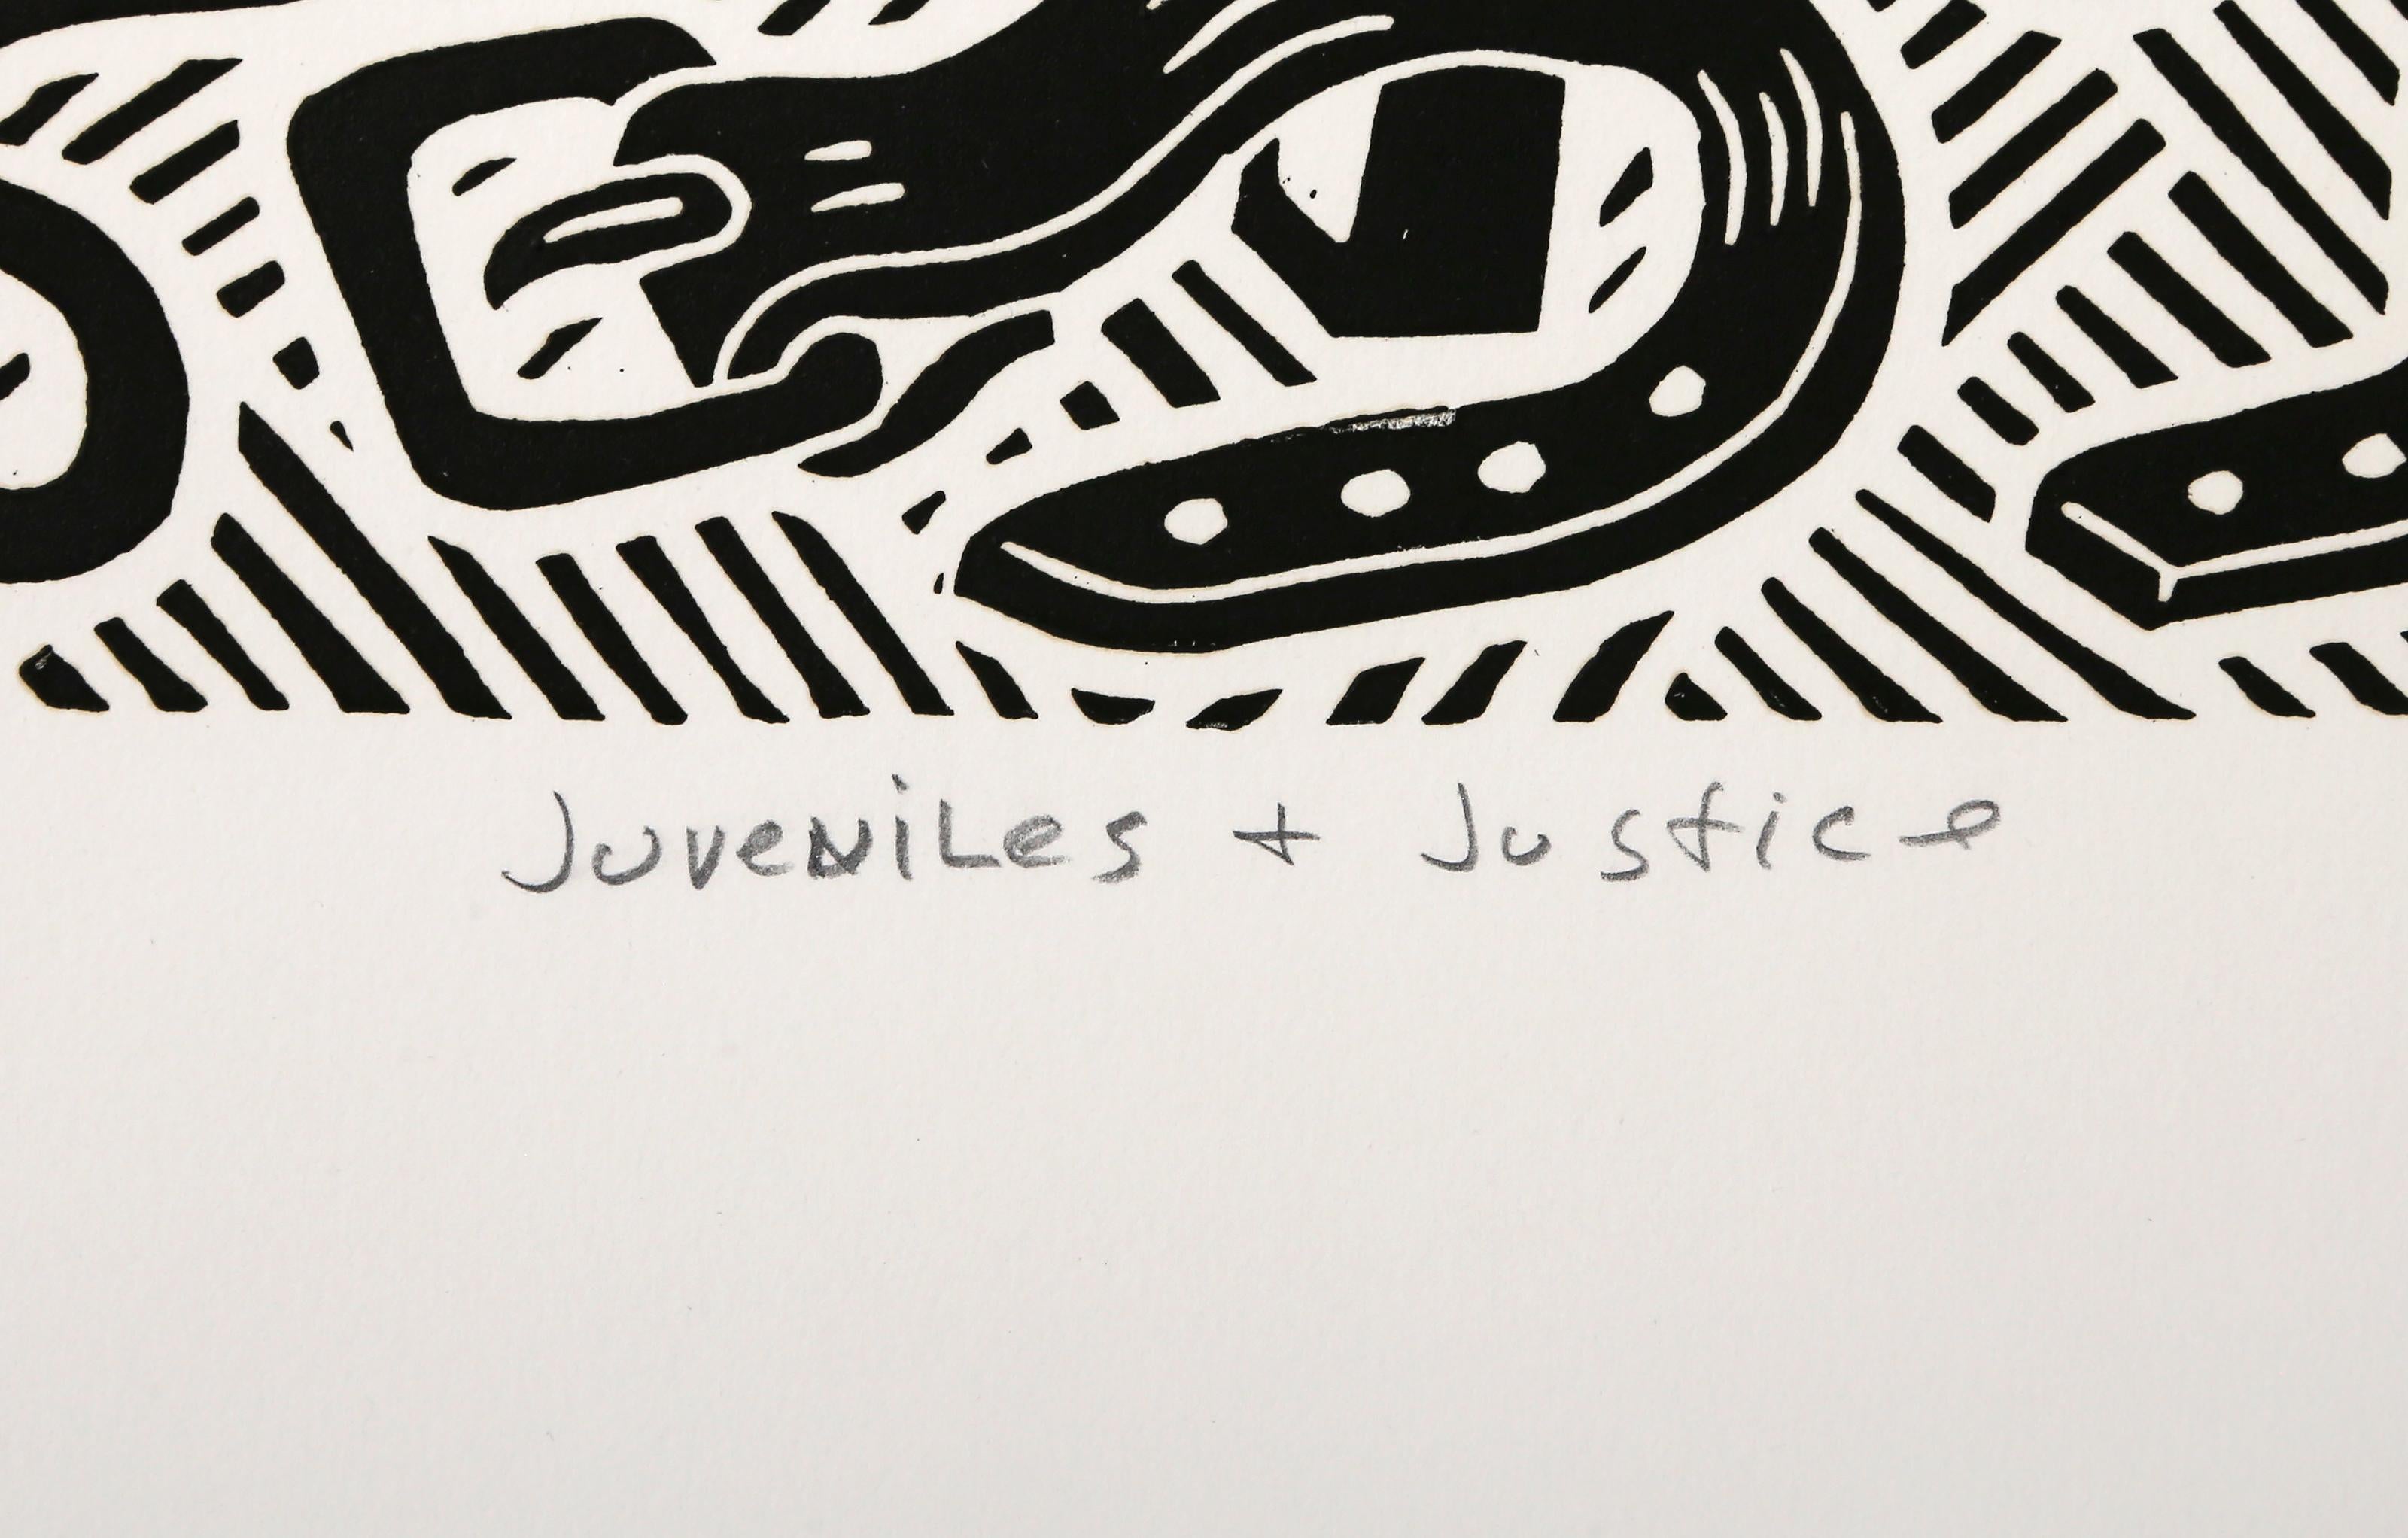 Juveniles + Justice